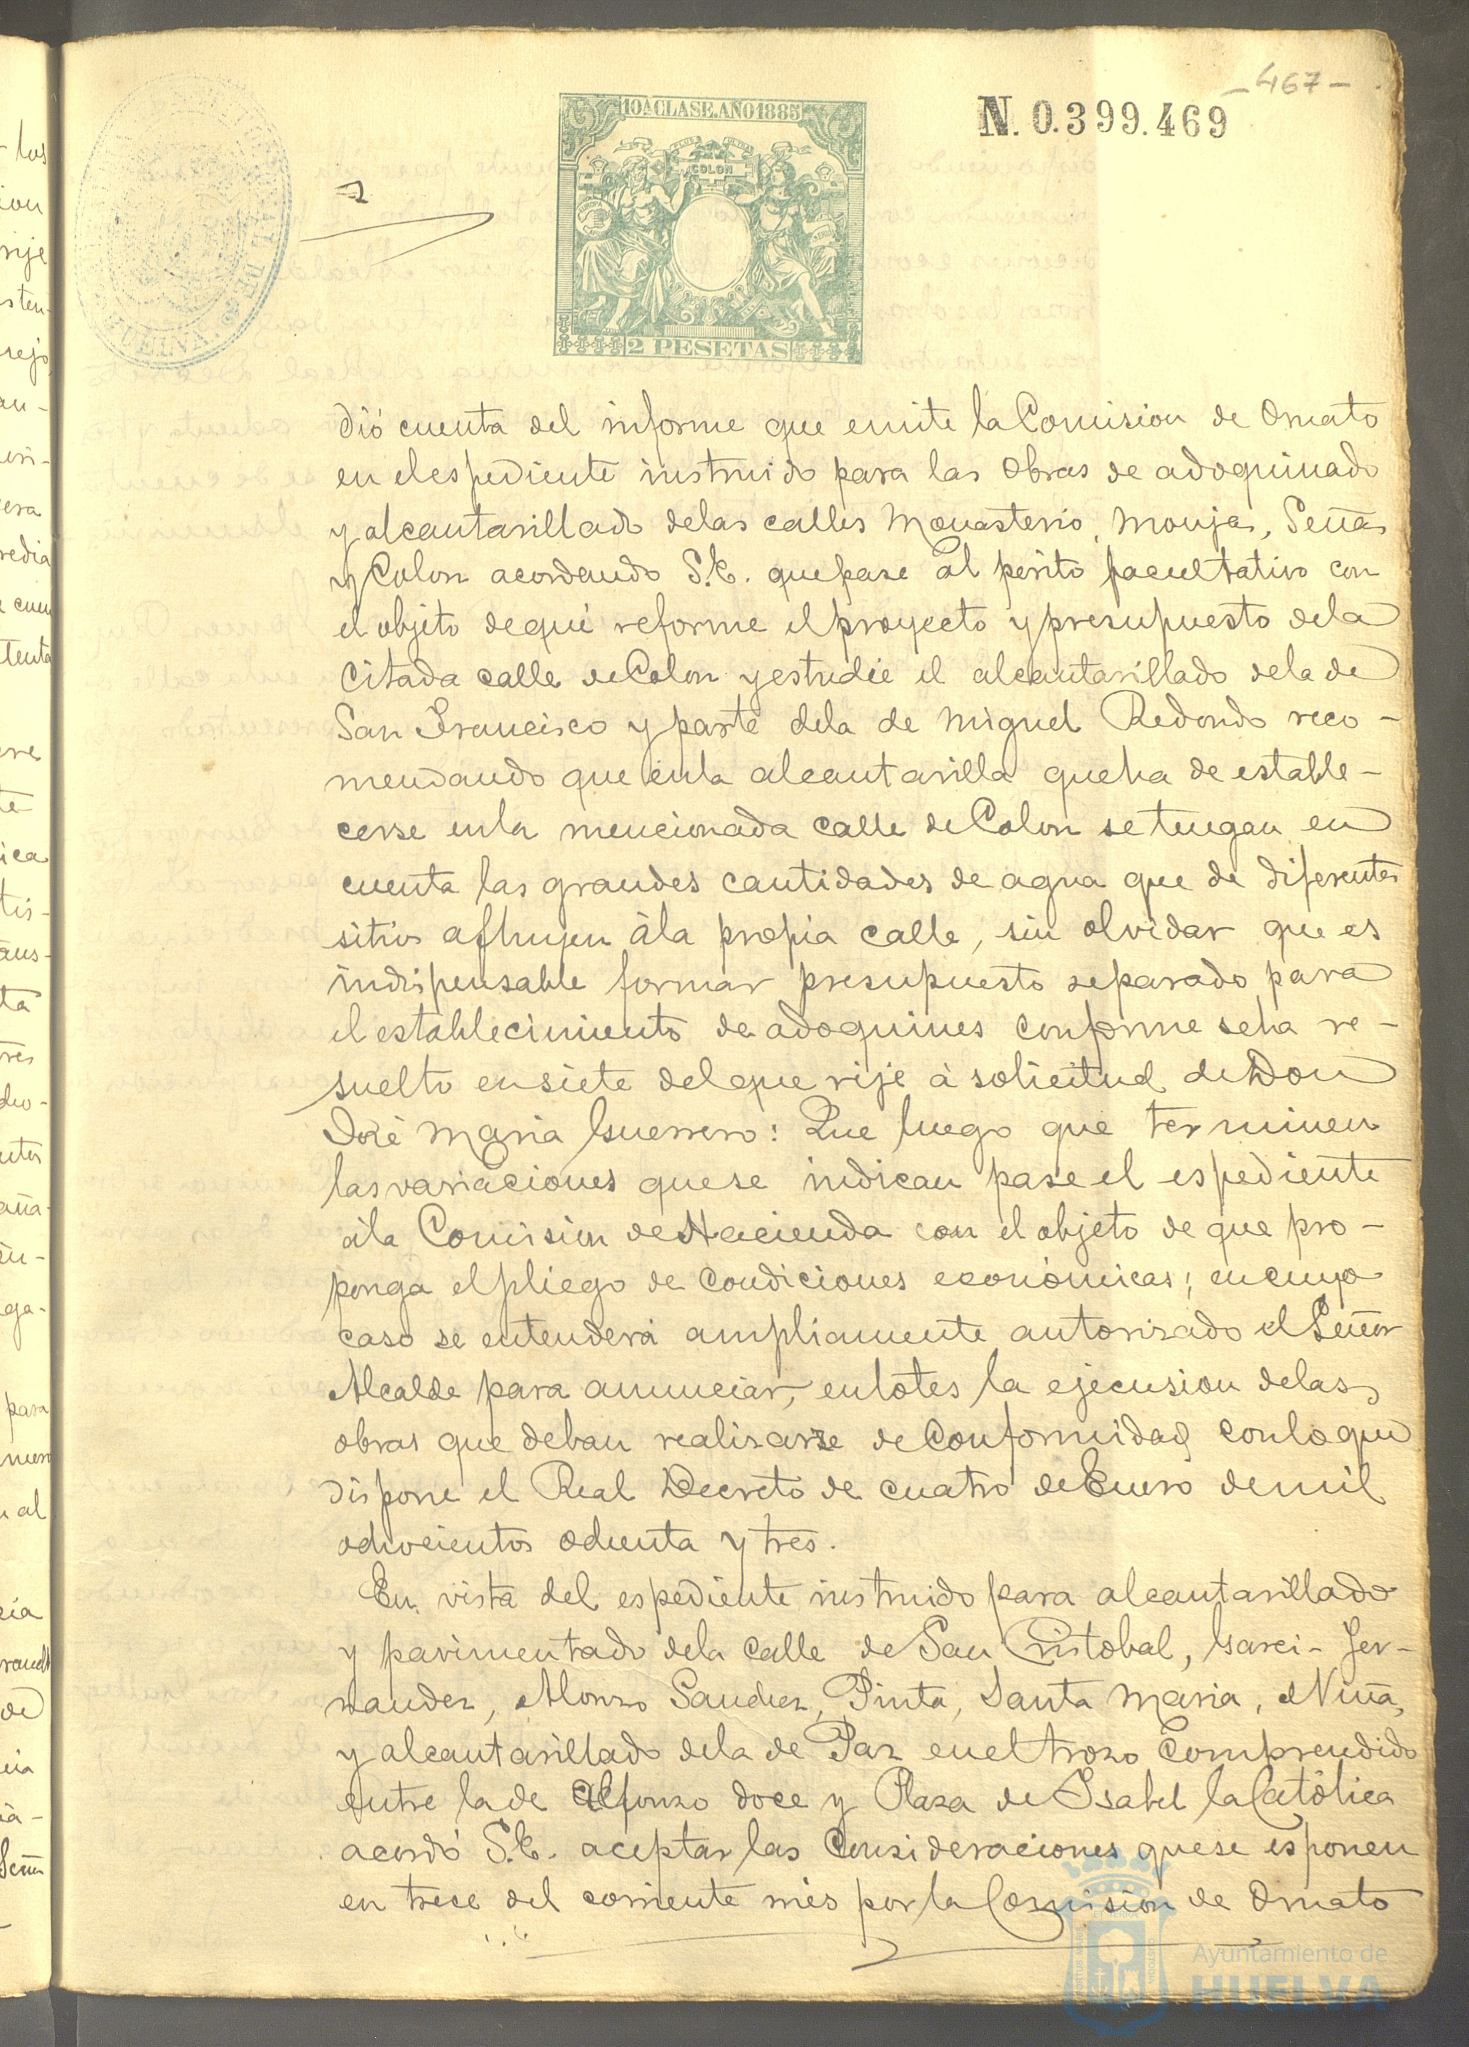 -467-
10ª CLASE. AÑO 1885
N. 0.399.469
COLON
EUROPA
2 PESETAS
HUELVA
dió cuenta del informe que emite la Comision de Ornato
en el espediente instruido para las obras de adoquinado
y alcantarillado de las calles Monasterio, Monjas, Señas
y Colon acordando S.E. que pase al perito facultativo con
el objeto de que reforme el proyecto y presupuesto de la
citada calle de Colon y estudie el alcantarillado de la de
San Francisco y parte dela de Miguel Redondo reco-
mendando que en la alcantarilla que ha de estable-
cerse en la mencionada calle de Colon se tengan en
cuenta las grandes cantidades de agua que de diferentes
sitios afluyen á la propia calle, sin olvidar que es
indispensable formar presupuesto separado para
el establecimiento de adoquines conforme se ha re-
suelto en siete del que rije á solicitud de Don
José Maria Guerrero: Que luego que terminen
las variaciones que se indican pase el espediente
á la Comision de Hacienda con el objeto de que pro-
ponga el pliego de condiciones económicas; en cuyo
caso se entenderá ampliamente autorizado el Señor
Alcalde para anunciar, en lotes la ejecusion de las
obras que deban realizarse de conformidad con lo que
dispone el Real Decreto de cuatro de Enero de mil
ochocientos ochenta y tres.
En vista del espediente instruido para alcantarillado
y pavimentado dela calle de San Cristobal, Garci-Fer-
nandez, Alonzo Sanchez, Pinta, Santa Maria, Niña,
y alcantarillado dela de Paz en el trozo comprendido
entre la de Alfonzo doce y Plaza de Isabel la Católica
acordó S.E. aceptar las consideraciones que se esponen
en trece del corriente mes por la Comision de Ornato
Ayuntamiento de
HUELVA